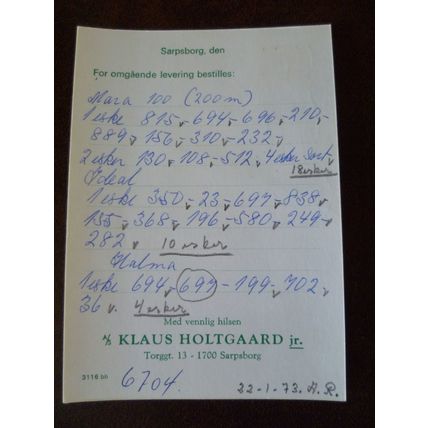 Sarpsborg, den
For omgående levering bestilles:
Mara 100 (200m)
1 eske 815 - 694 - 696 - 210 -
889 - 156 - 310 - 232
2 esker 130 - 108 - 512, 4 esker Sort
18 esker
Ideal
1 eske 350 - 23 - 697 - 838
155 - 368 - 196 - 580 - 249 -
282 10 esker
Halma
1 eske 694 - 699 - 199 - 702
36 4 esker
Med vennlig hilsen
A/S KLAUS HOLTGAARD jr.
Torggt. 13 - 1700 Sarpsborg
3116 bn
6704.
22-1-73. A.R.